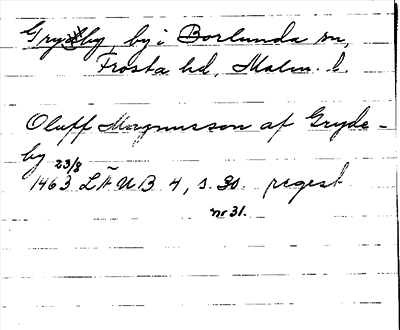 Gryby, by i Borlunda sn,
Frosta hd, Malm. l.
Oluff Magnusson af Gryde-
by 23/8
1463 LÄUB 4, s. 30. regest
nr 31.